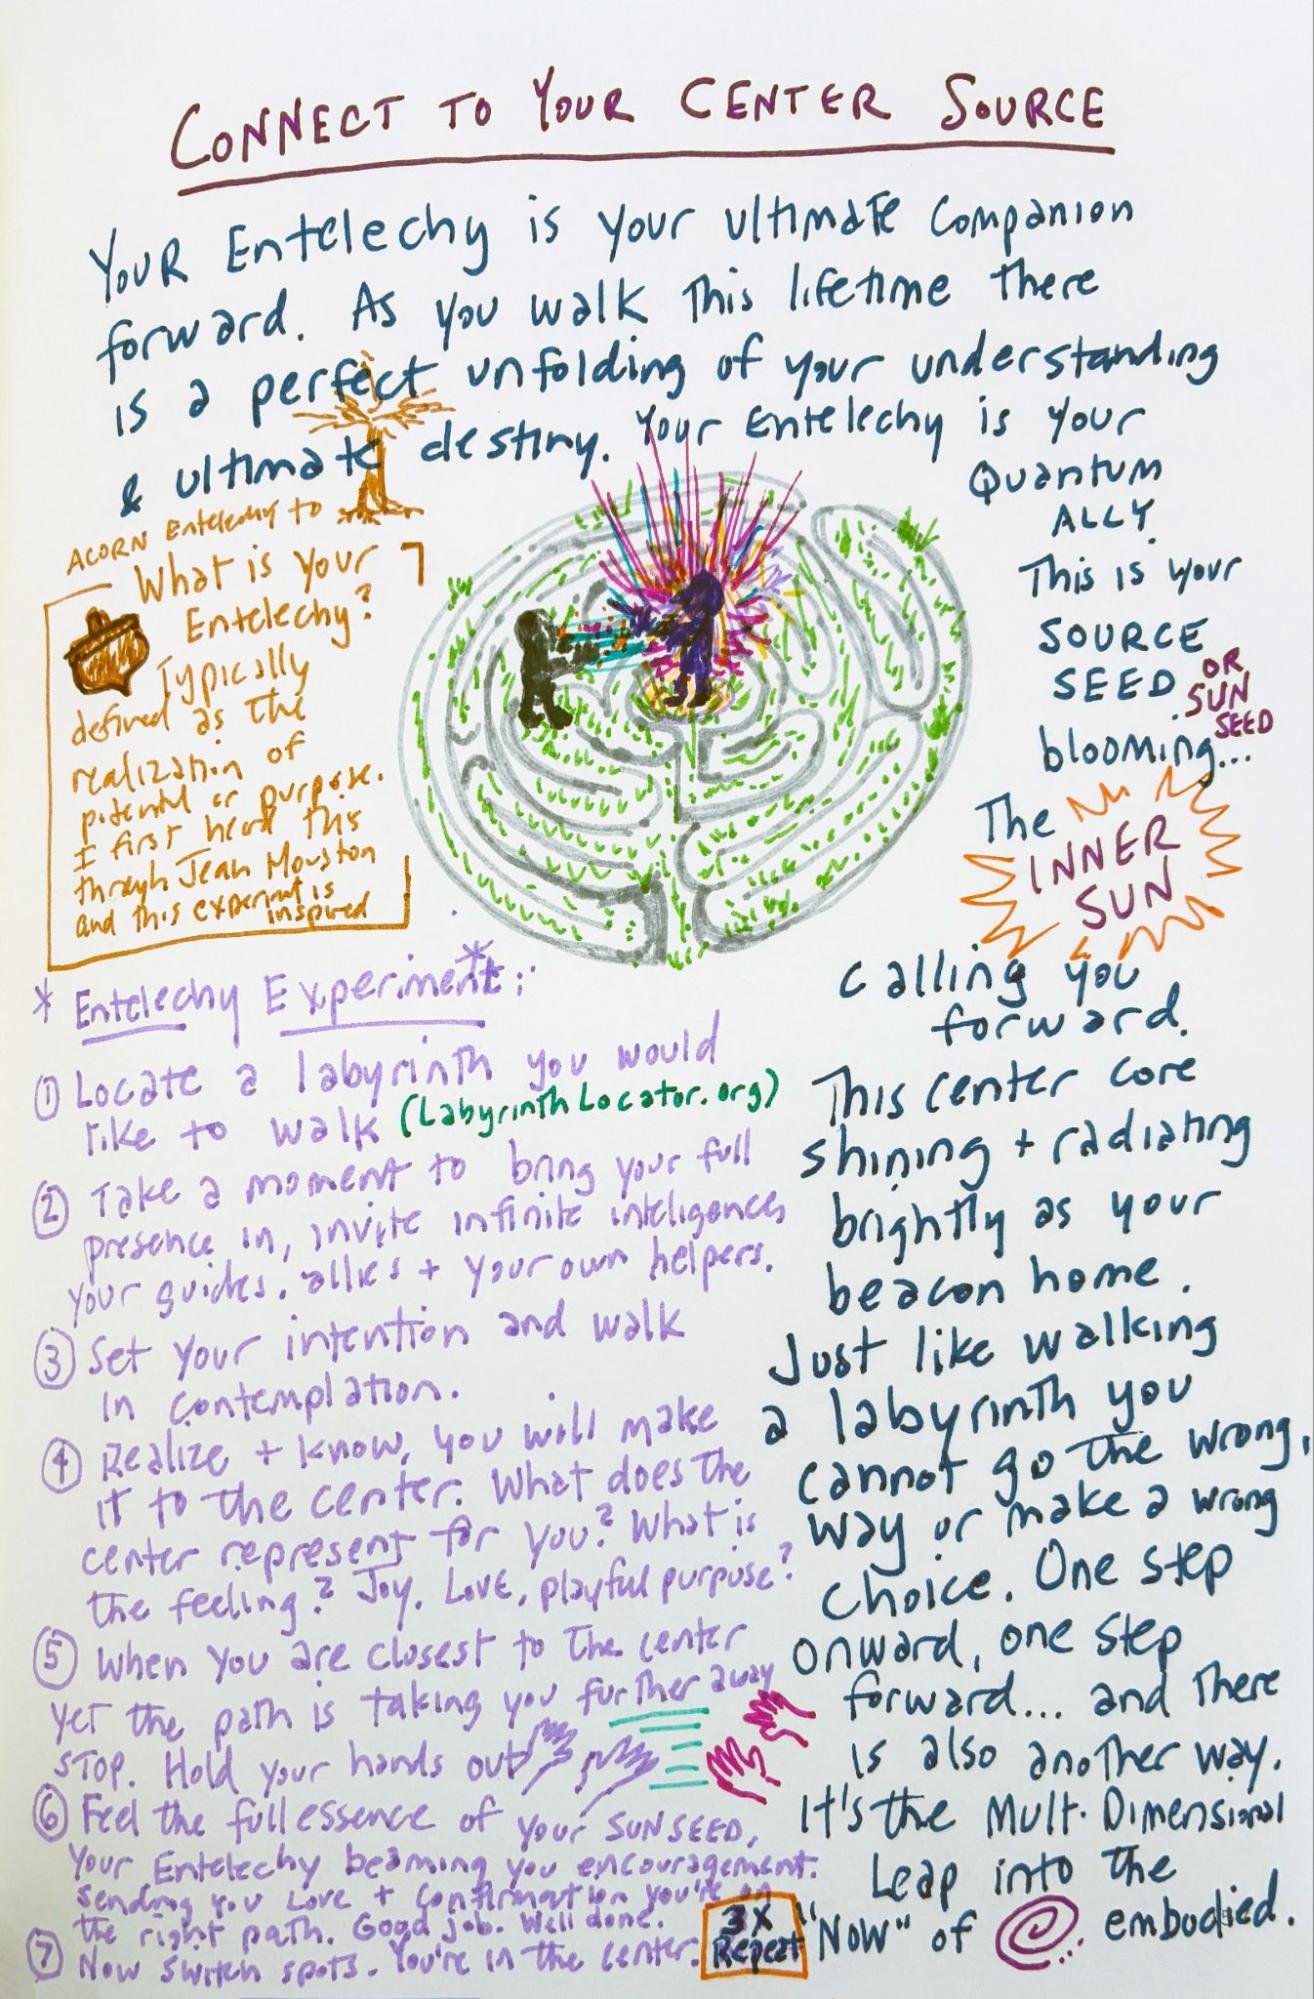 CONNECT TO YOUR CENTER SOURCE
YOUR Entelechy is your ultimate Companion
forward. As you walk This lifetime There
is a perfect unfolding of your understanding
& ultimate destiny. Your Entelechy is Your
Quantum
ALLY.
This is your
SOURCE
SEED OR
SUN
SEED
blooming...
The INNER
SUN
calling you
forward.
This center core
shining + radiating
brightly as your
beacon home.
Just like walking
a labyrinth you
cannot go the wrong,
way or make a wrong
choice. One step
onward, one step
forward... and There
is also another way.
It's the Mult. Dimensional
Leap into the
"Now" of embodied.
ACORN Entelechy to
What is Your
Entelechy?
Typically
defined as The
realization of
potential or purpose.
I first heard This
through Jean Houston
and this experiment is
inspired
* Entelechy Experiment*:
① Locate a labyrinth you would
like to walk (LabyrinthLocator.org)
② Take a moment to bring your full
presence in, invite infinite inteligences,
your guides, allies + your own helpers.
③ Set your intention and walk
in contemplation.
④ Realize + know, you will make
it to the center. What does The
center represent for you? What is
the feeling? Joy, Love, playful purpose?
⑤ When you are closest to The center
yet the path is taking you further away
STOP. Hold your hands out
⑥ Feel the full essence of your SUN SEED,
Your Entelechy beaming you encouragement.
Sending you Love + Confirmation you're on
the right path. Good job. Well done.
⑦ Now switch spots. You're in the center.
3X
Repeat